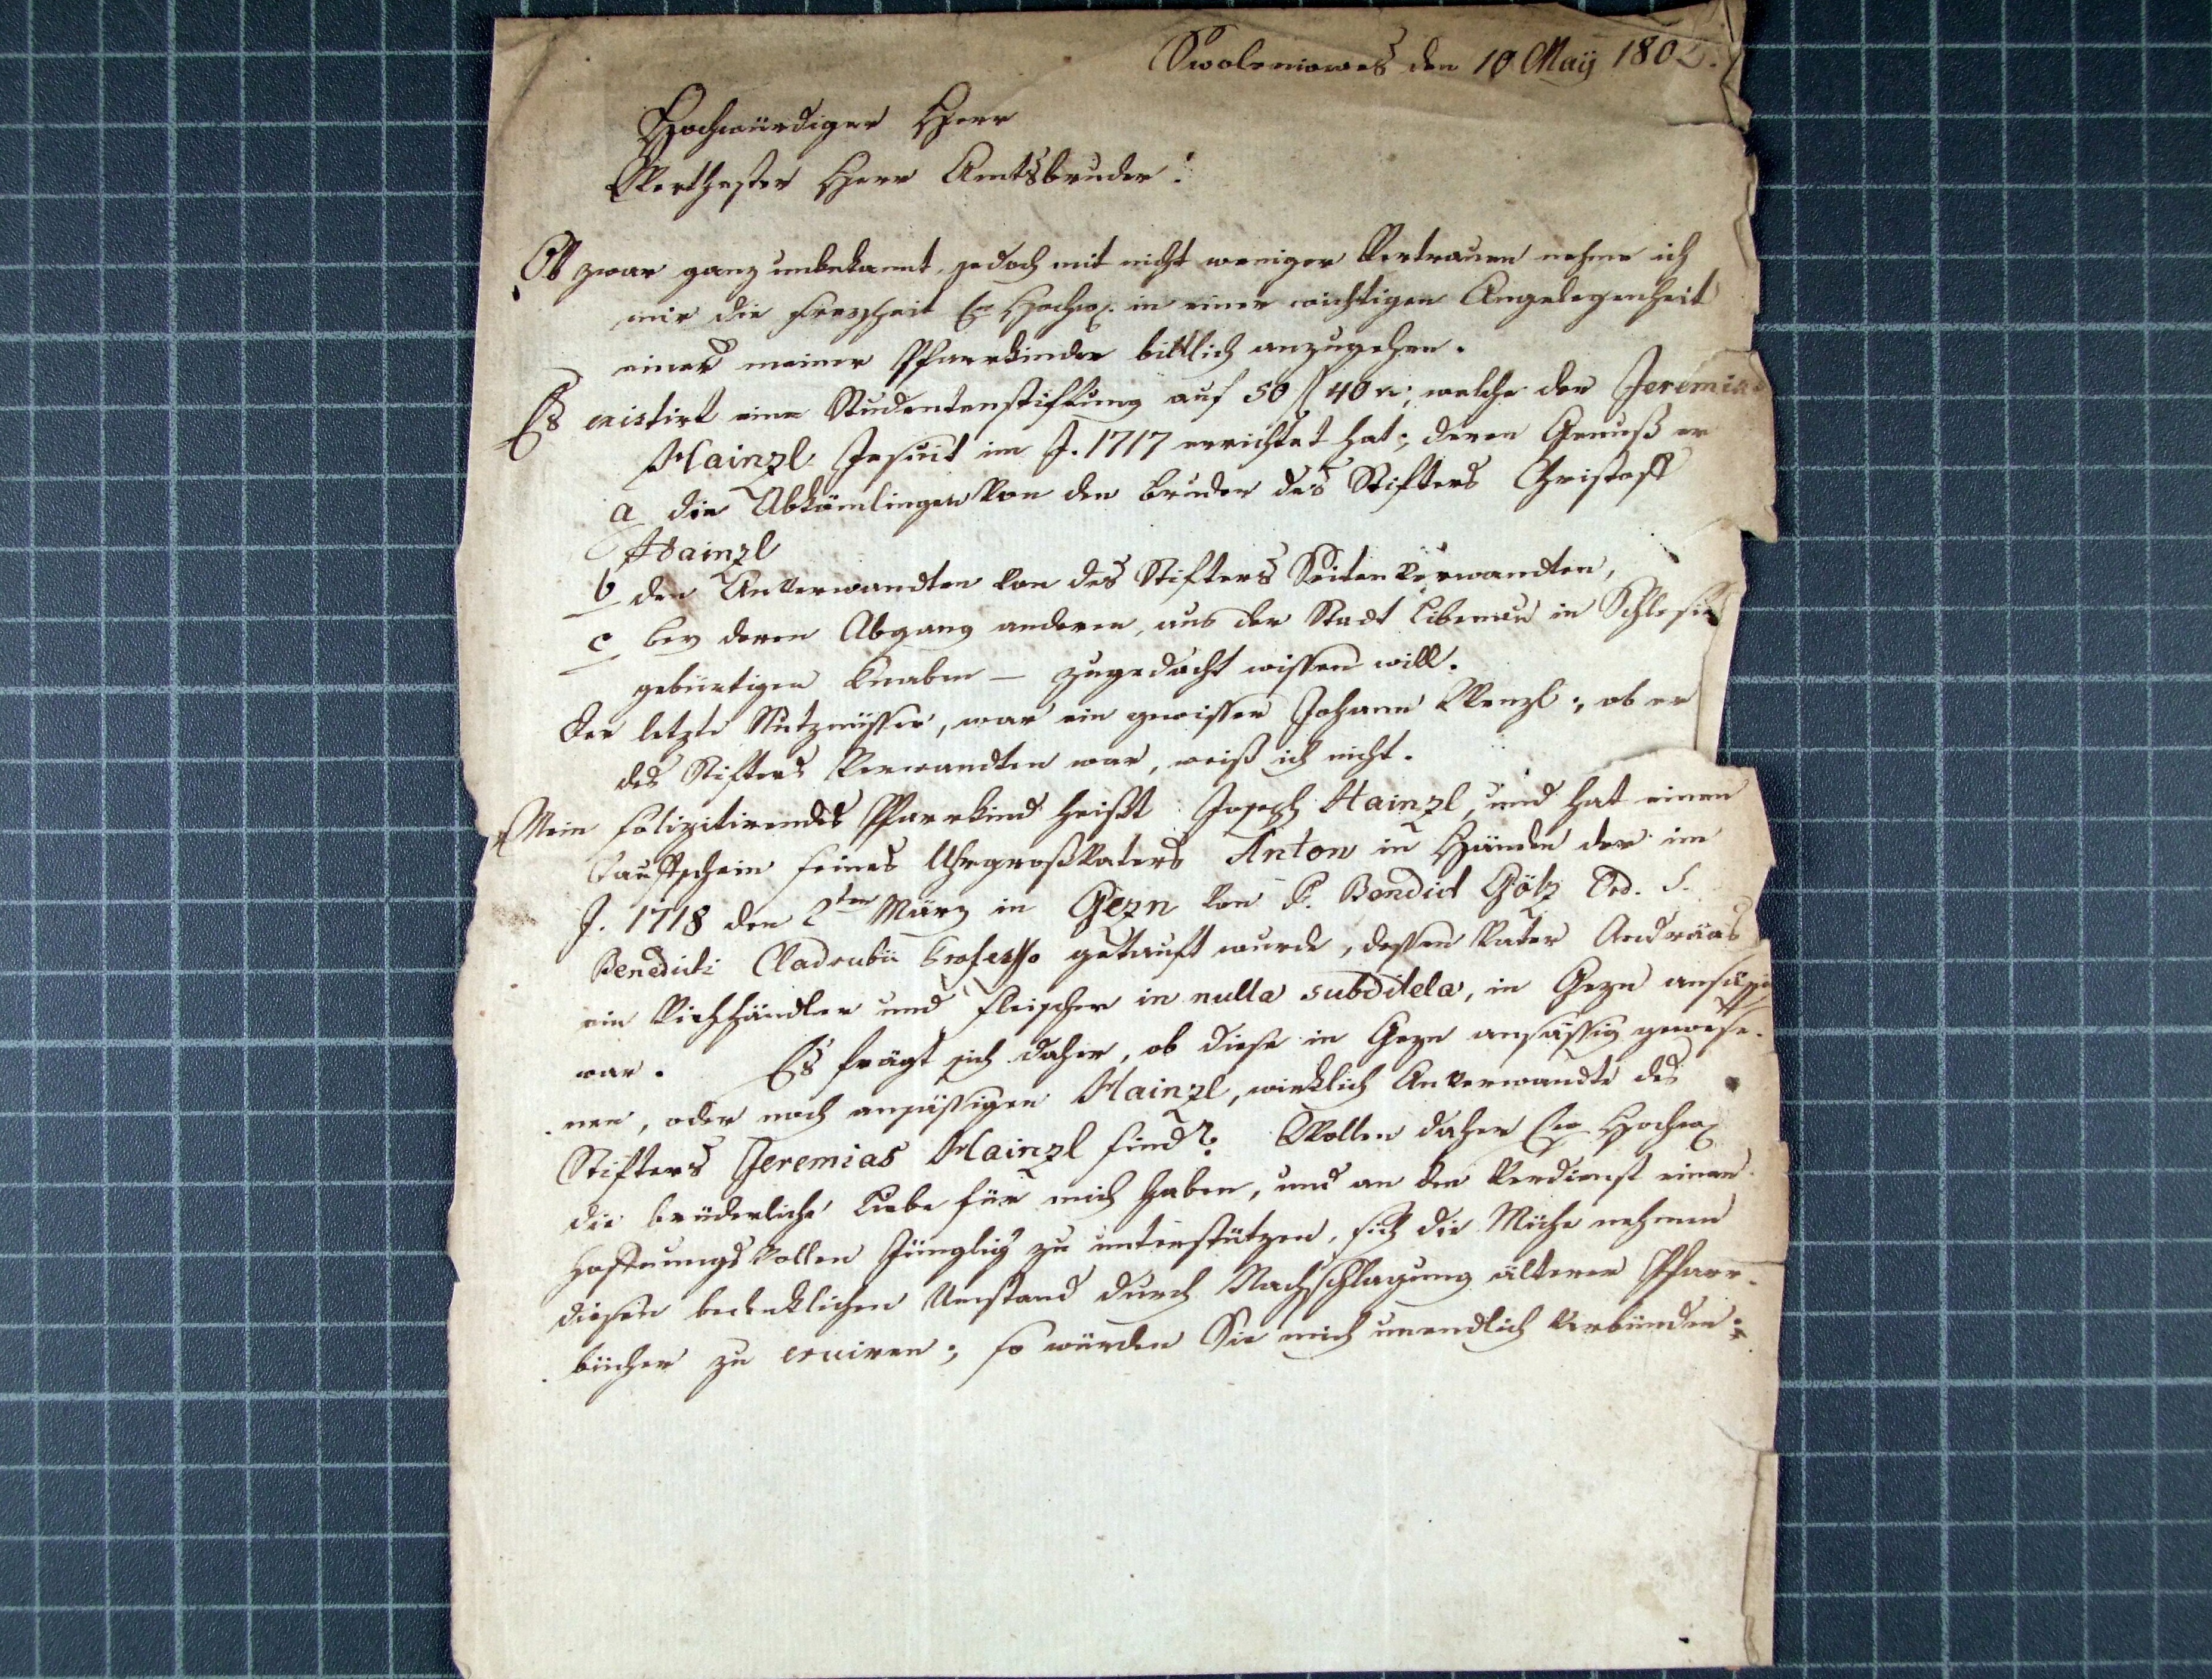 Swoleniowes den 10 Maÿ 1802.
Hochwürdiger Herr
Werthester Herr Amtsbruder!
Ob zwar ganz unbekannt, jedoch mit nicht weniger Vertrauen nehme ich
mir die Freyheit Eu Hochw. in einer wichtigen Angelegenheit
eines meiner Pfarrkinder bittlich anzugehen.
Es existirt eine Studentenstiftung auf 50 f 40 xr; welche der Jeremias
Hainzl Jesuit im J. 1717 errichtet hat; deren Genuß er
a die Abkömlingen von den Bruder des Stifters Christoff
Hainzl
b den Anverwandten von des Stifters Seitenverwandten,
c bey deren Abgang anderen, aus der Stadt Libenau in Schlesien
gebürtigen Knaben — zugedacht wissen will.
Der letzte Nutznüsser, war ein gewisser Johann Wenzl; ob er
des Stifters Verwandten war, weiß ich nicht.
Mein solizitirendes Pfarrkind heißt Joseph Hainzl, und hat einen
Taufschein seines Uhrgroßvaters Anton in Händen der im
J. 1718 den 2ten März in Gezn von P. Bendict Götz Ord. S.
Benedicti Cladrubii Professo getauft wurde, dessen Vater Andreas
ein Viehhändler und Fleischer in nulla subditela, in Gezn ansässig
war. Es frägt sich daher, ob diese in Gezn ansässig gewese-
nen, oder noch ansässigen Hainzl, wirklich Anverwandte des
Stifters Jeremias Hainzl sind? Wollen daher Eu Hochw
die brüderliche Liebe für mich haben, und an den Verdienst einen
hoffnungsvollen Jünglig zu unterstützen, sich die Mühe nehmen
diesen bedenklichen Umstand durch Nachschlagung älterer Pfarr-
bücher zu eruiren; so würden Sie mich unendlich verbünden: